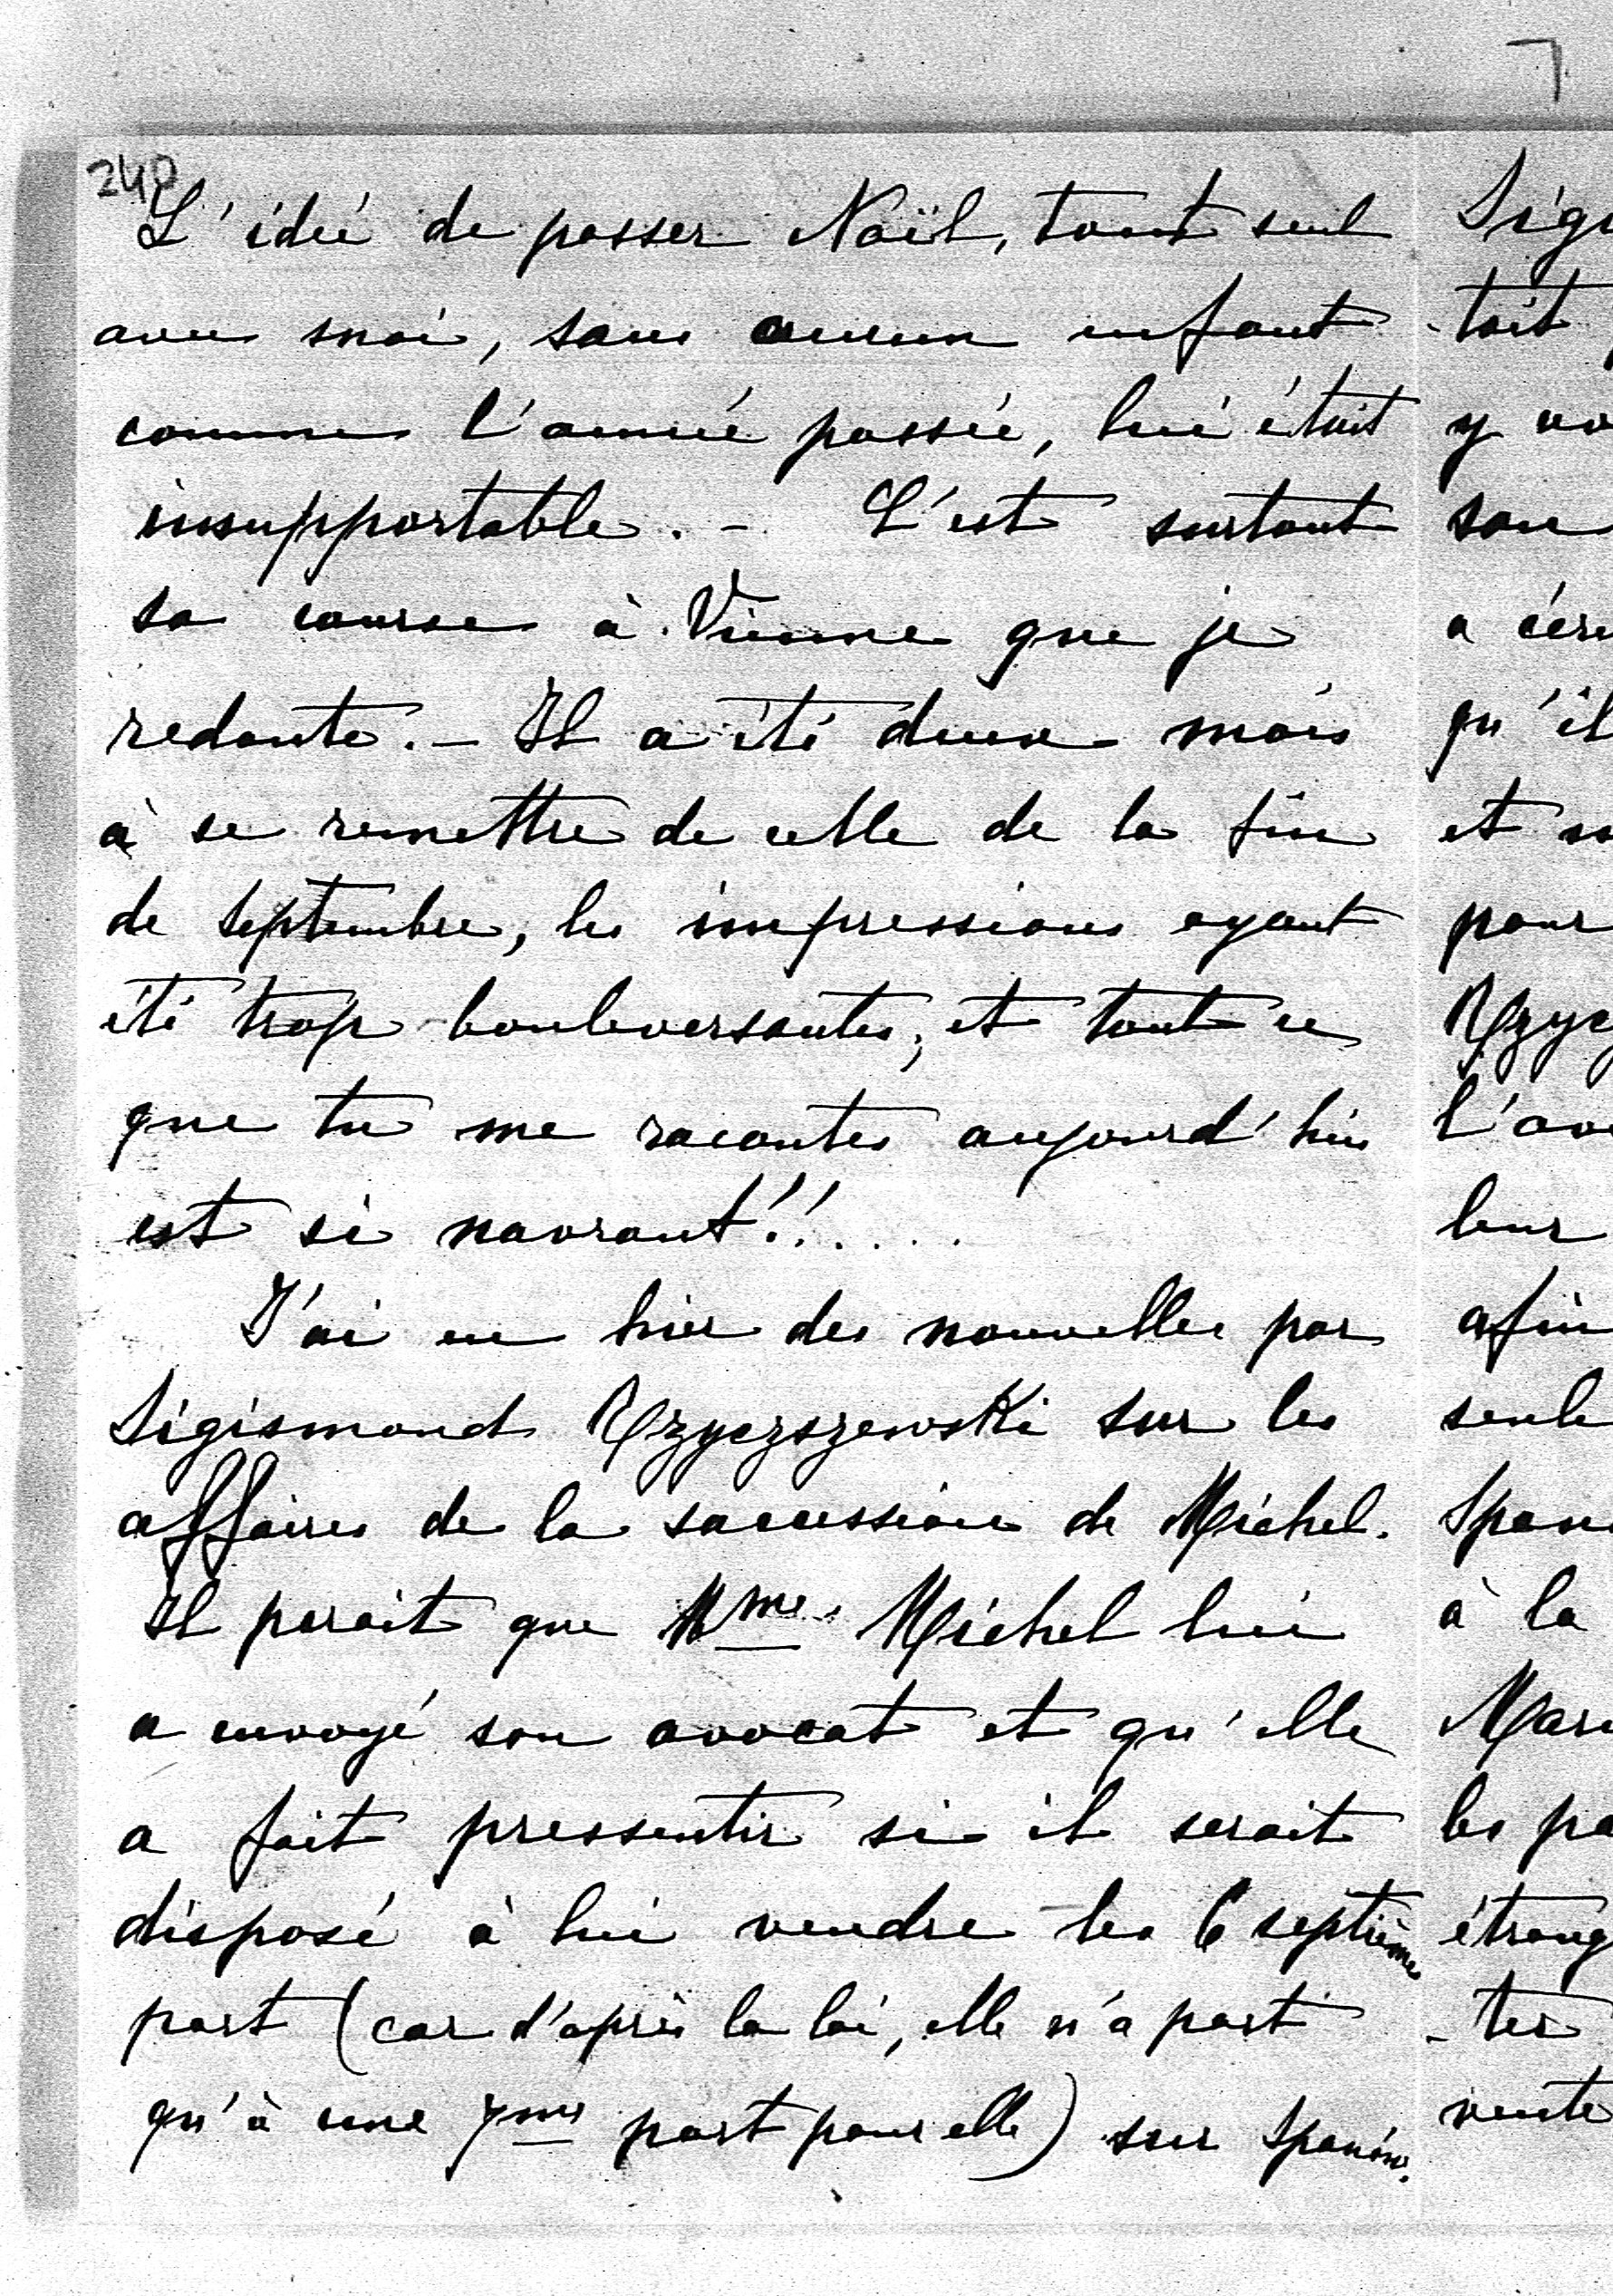 7
240
L'idée de passer Noël, tout seul
avec moi, sans aucun enfant
comme l'année passée, lui était
insupportable. - C'est surtout
sa course à Vienne que je
redoute. - Il a été deux mois
à se remettre de celle de la fin
de Septembre, les impressions ayant
été trop bouleversantes, et tout ce
que tu me racontes aujourd'hui
est si navrant!!.....
J'ai eu hier des nouvelles par
Sigismond sur les
affaires de la succession de Michel.
Il parait que Mme Michel lui
a envoyé son avocat et qu'elle
a fait pressentir si il serait
disposé à lui vendre les 6 septième
part (car d'après la loi, elle n'a part
qu'à une 7me part pour elle) sur
Sigi
-tait
y vo
son
a écri
qu'il
et
pour
l'avo
leur
afin
seule
à la
Mari
les pa
étrang
-ter
vente